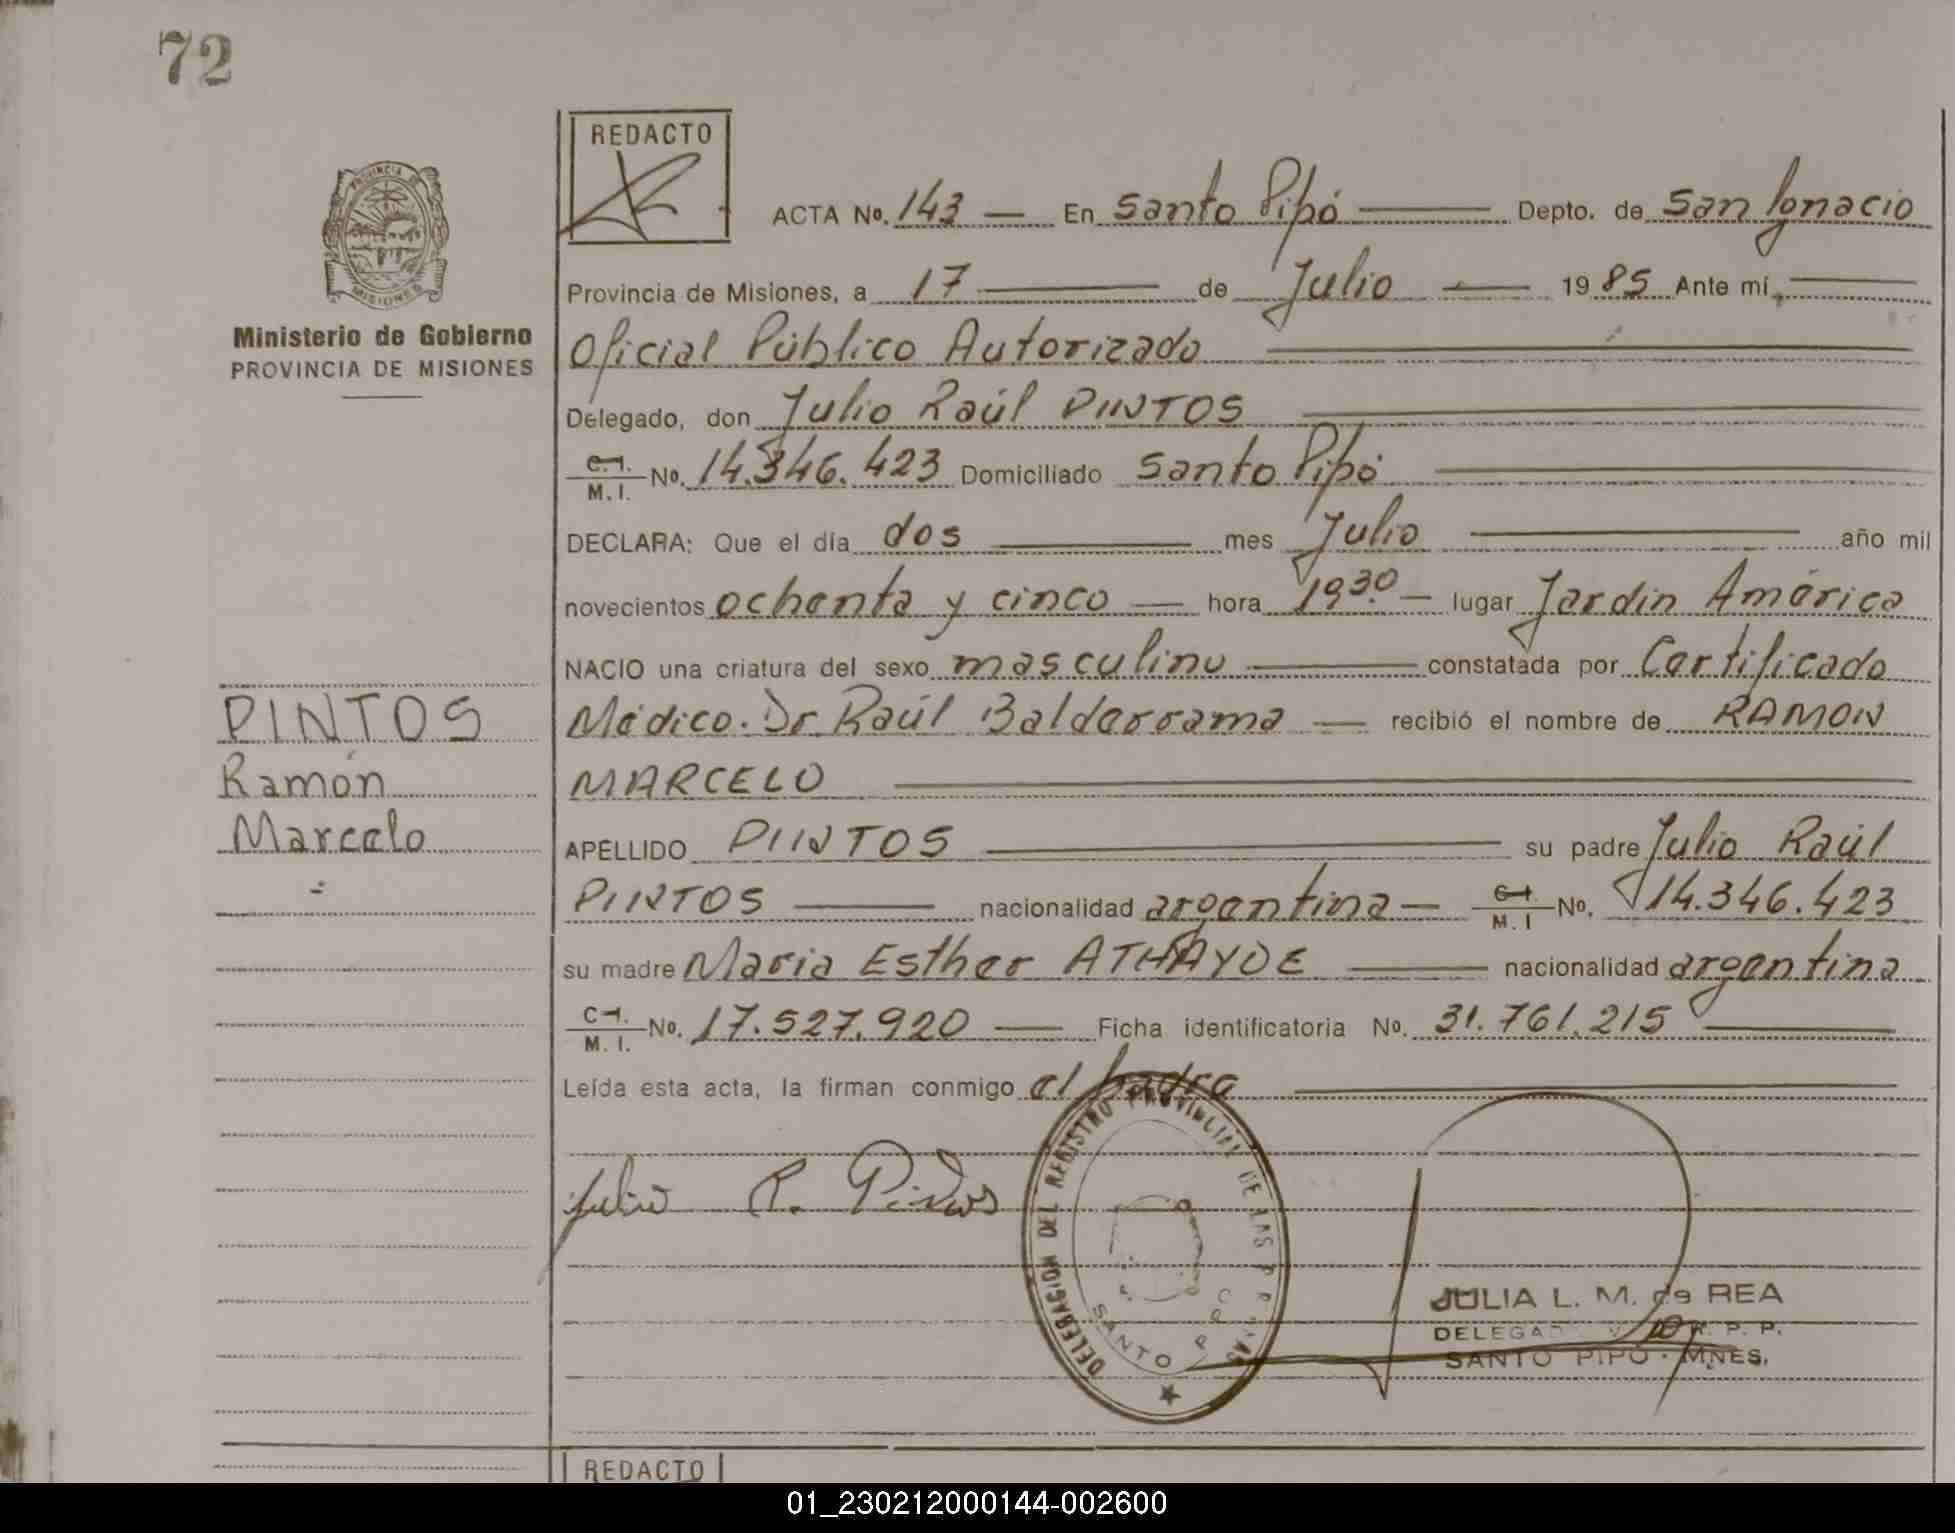 72
REDACTO
PROVINCIA DE
MISIONES
Ministerio de Gobierno
PROVINCIA DE MISIONES
ACTA No. 143 — En Santo Pipó — Depto. de San Ignacio
Provincia de Misiones, a 17 — de Julio — 1985 Ante mí, —
Oficial Público Autorizado —
Delegado, don Julio Raúl PINTOS —
C.I. M.I. No. 14.346.423 Domiciliado Santo Pipó —
DECLARA: Que el día dos — mes Julio — año mil
novecientos ochenta y cinco — hora 19 30 — lugar Jardín América
NACIO una criatura del sexo masculino — constatada por Certificado
Médico. Dr. Raúl Balderrama — recibió el nombre de RAMON
MARCELO —
APELLIDO PINTOS — su padre Julio Raúl
PINTOS — nacionalidad argentina — C.I. M.I No. 14.346.423
su madre Maria Esther ATHAYDE — nacionalidad argentina
C.I. M.I. No. 17.527.920 — Ficha identificatoria No. 31.761.215 —
Leída esta acta, la firman conmigo el padre —
PINTOS
Ramón
Marcelo
Julio R. Pintos
DELEGACION DEL REGISTRO PROVINCIAL DE LAS PERSONAS
SANTO PIPO
JULIA L. M. de REA
R. P. P.
SANTO PIPO - MNES.
REDACTO
01_230212000144-002600